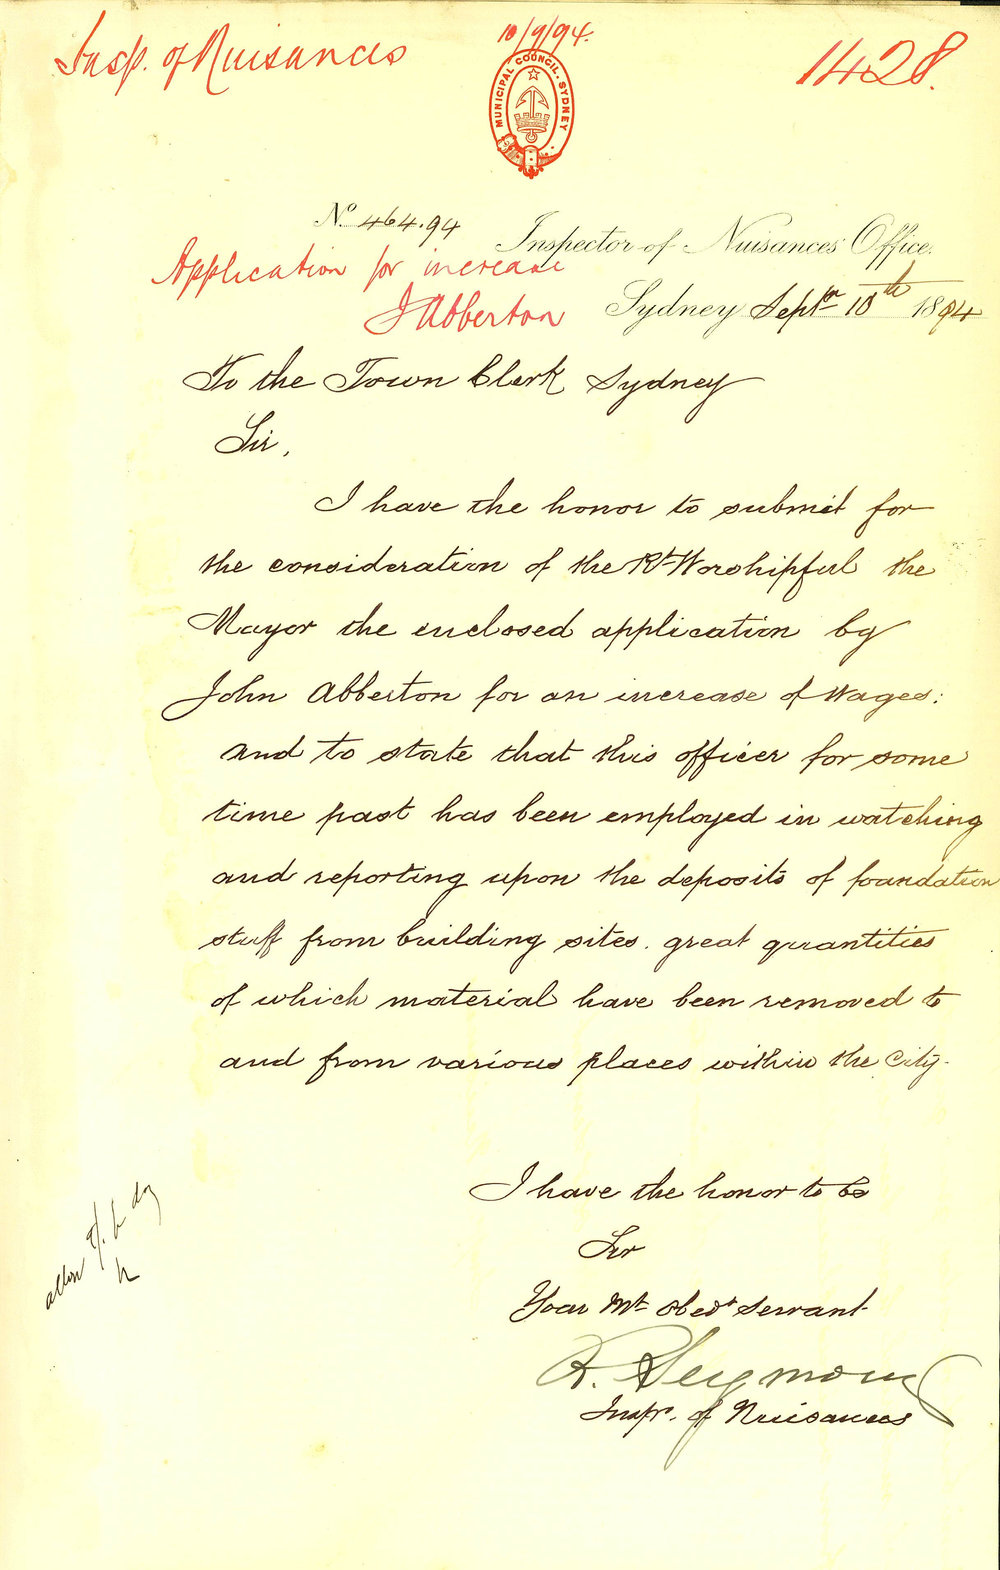 10/9/94.
Insp. of Nuisances
1428.
MUNICIPAL COUNCIL. SYDNEY
No. 464.94
Inspector of Nuisances Office.
Application for increase
J Abberton
Sydney Septr 10th 1894
To the Town Clerk Sydney
Sir,
I have the honor to submit for
the consideration of the Rt Worshipful the
Mayor the enclosed application by
John Abberton for an increase of Wages:
and to state that this officer for some
time past has been employed in watching
and reporting upon the deposits of foundation
stuff from building sites. great quantities
of which material have been removed to
and from various places within the City.
I have the honor to be
Sir
Your Mt Obedt Servant
R. Seymour
Inspr. of Nuisances
allow